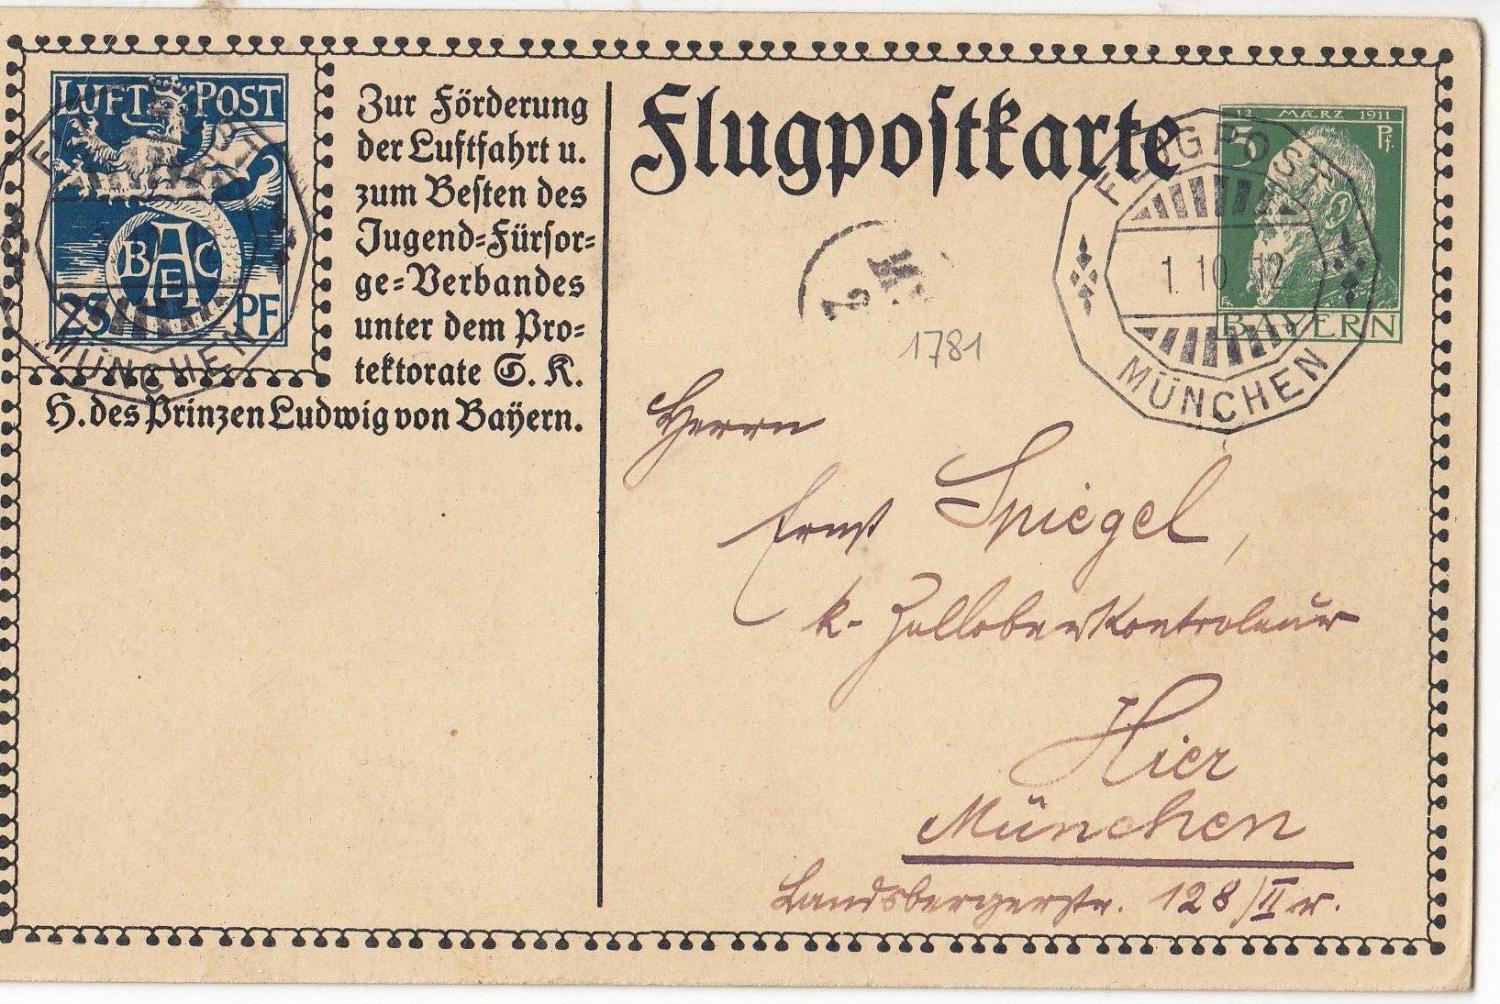 LUFT POST
BAEC
25 PF
MÜNCHEN
Zur Förderung
der Luftfahrt u.
zum Besten des
Jugend=Fürsor=
ge=Verbandes
unter dem Pro=
tektorate S. K.
H. des Prinzen Ludwig von Bayern.
Flugpostkarte
12 MÆRZ 1911
5 Pf.
BAYERN
FLUGPOST
1. 10. 12
MÜNCHEN
1781
Herrn
Ernst Spiegel,
k. Zolloberkontroleur
Hier
München
Landsbergerstr. 128/II r.